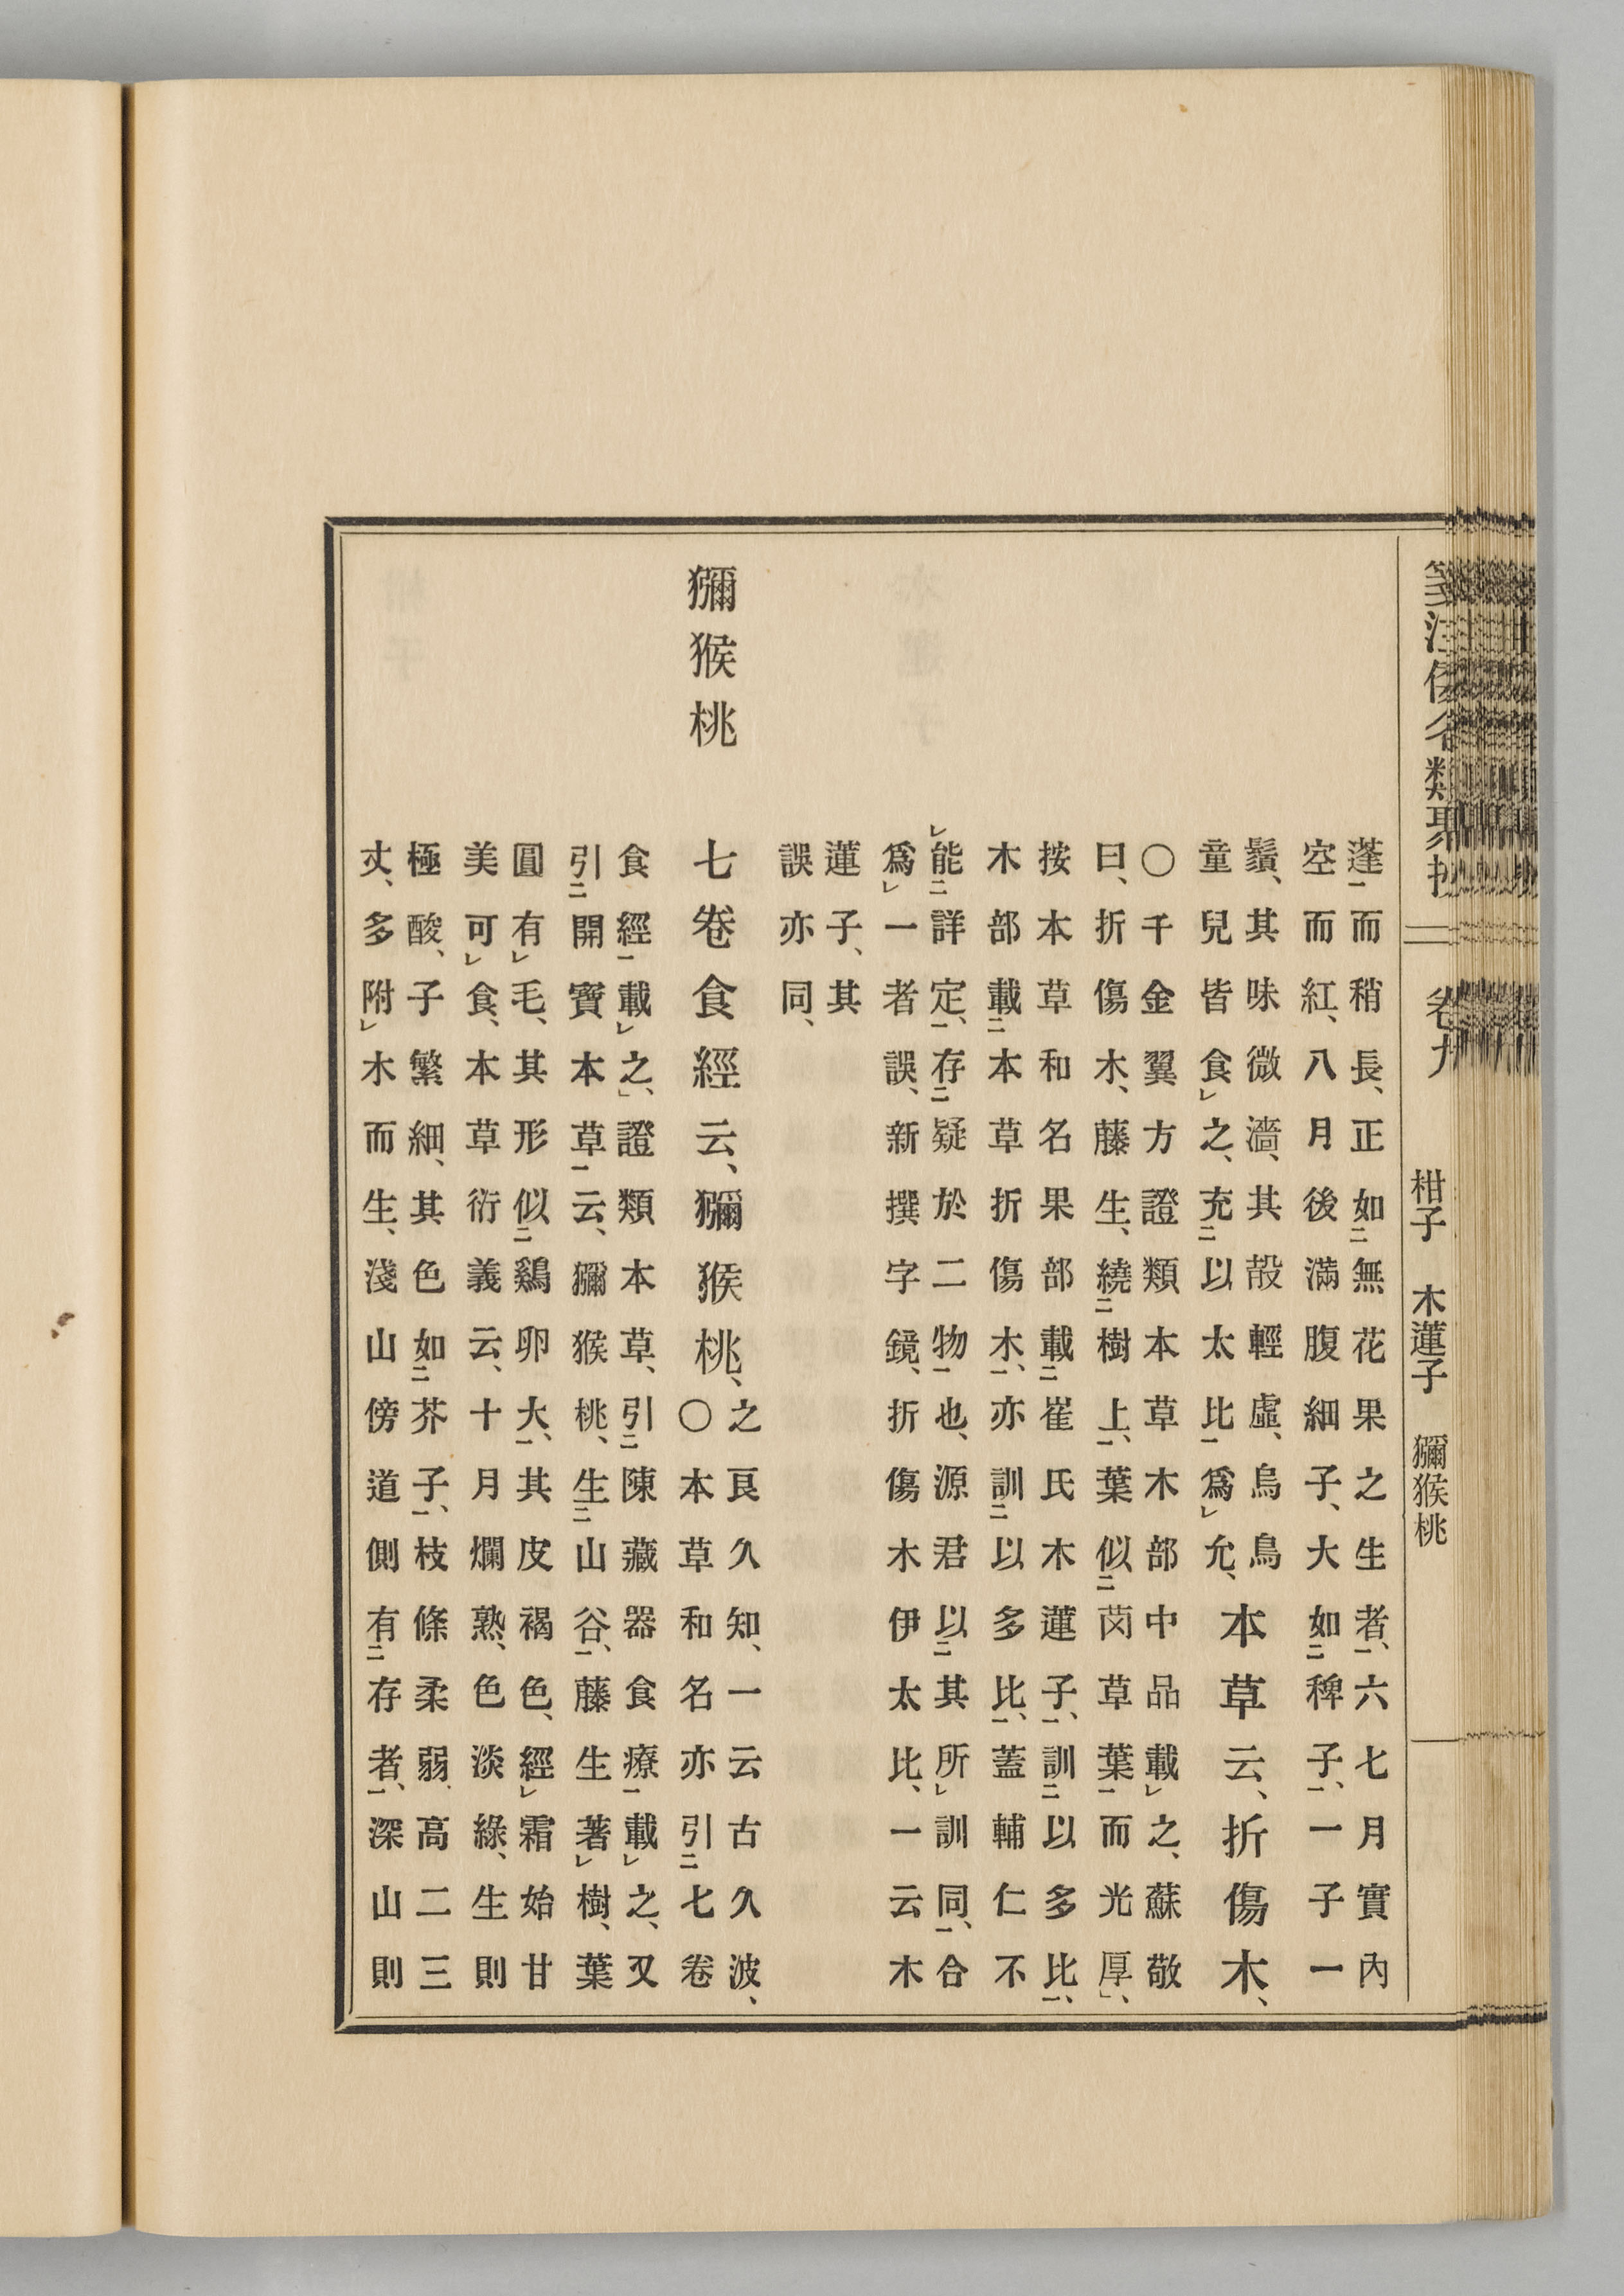 箋注倭名類聚抄 卷九 柑子 木蓮子 獼猴桃
蓬㆒而稍長、正如㆓無花果之生者㆒、六七月實內
空而紅、八月後滿腹細子、大如㆓稗子㆒、一子一
鬚、其味微濇、其殼輕虛、烏鳥
童兒皆食㆑之、充㆓以太比㆒爲㆑允、
本草云、折傷木、
〇千金翼方證類本草木部中品載㆑之、蘇敬
曰、折傷木、藤生、繞㆓樹上㆒、葉似㆓草葉㆒而光厚」、
按本草和名果部載㆓崔氏木蓮子㆒、訓㆓以多比㆒、
木部載㆓本草折傷木㆒、亦訓㆓以多比㆒、蓋輔仁不
㆑能㆓詳定㆒、存㆓疑於二物㆒也、源君以㆓其所㆑訓同㆒、合
爲㆑一者誤、新撰字鏡、折傷木伊太比、一云木
蓮子、其
誤亦同、
獼猴桃
七卷食經云、獼猴桃、
之良久知、一云古久波、
〇本草和名亦引㆓七卷
食經㆒載㆑之」、證類本草、引㆓陳藏器食療㆒載㆑之、又
引㆓開寶本草㆒云、獼猴桃、生㆓山谷㆒、藤生著㆑樹、葉
圓有㆑毛、其形似㆓鷄卵大㆒、其皮褐色、經㆑霜始甘
美可㆑食、本草衍義云、十月爛熟、色淡綠、生則
極酸、子繁細、其色如㆓芥子㆒、枝條柔弱、高二三
丈、多附㆑木而生、淺山傍道側有㆓存者㆒、深山則